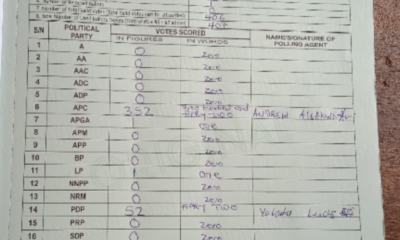 S/N POLITICAL PARTY VOTES SCORED NAME/SIGNATURE OF POLLING AGENT
IN FIGURES IN WORDS
1 A 0 Zero
2 AA 0 Zero
3 AAC 0 Zero
4 ADC 0 Zero
5 ADP 0 Zero
6 APC 352 Three hundred and fifty-two
7 APGA 1 One
8 APM 0 Zero
9 APP 0 Zero
10 BP 0 Zero
11 LP 1 One
12 NNPP 0 Zero
13 NRM 0 Zero
14 PDP 52 Fifty two Yakubu
15 PRP 0 Zero
16 SDP 0 Zero